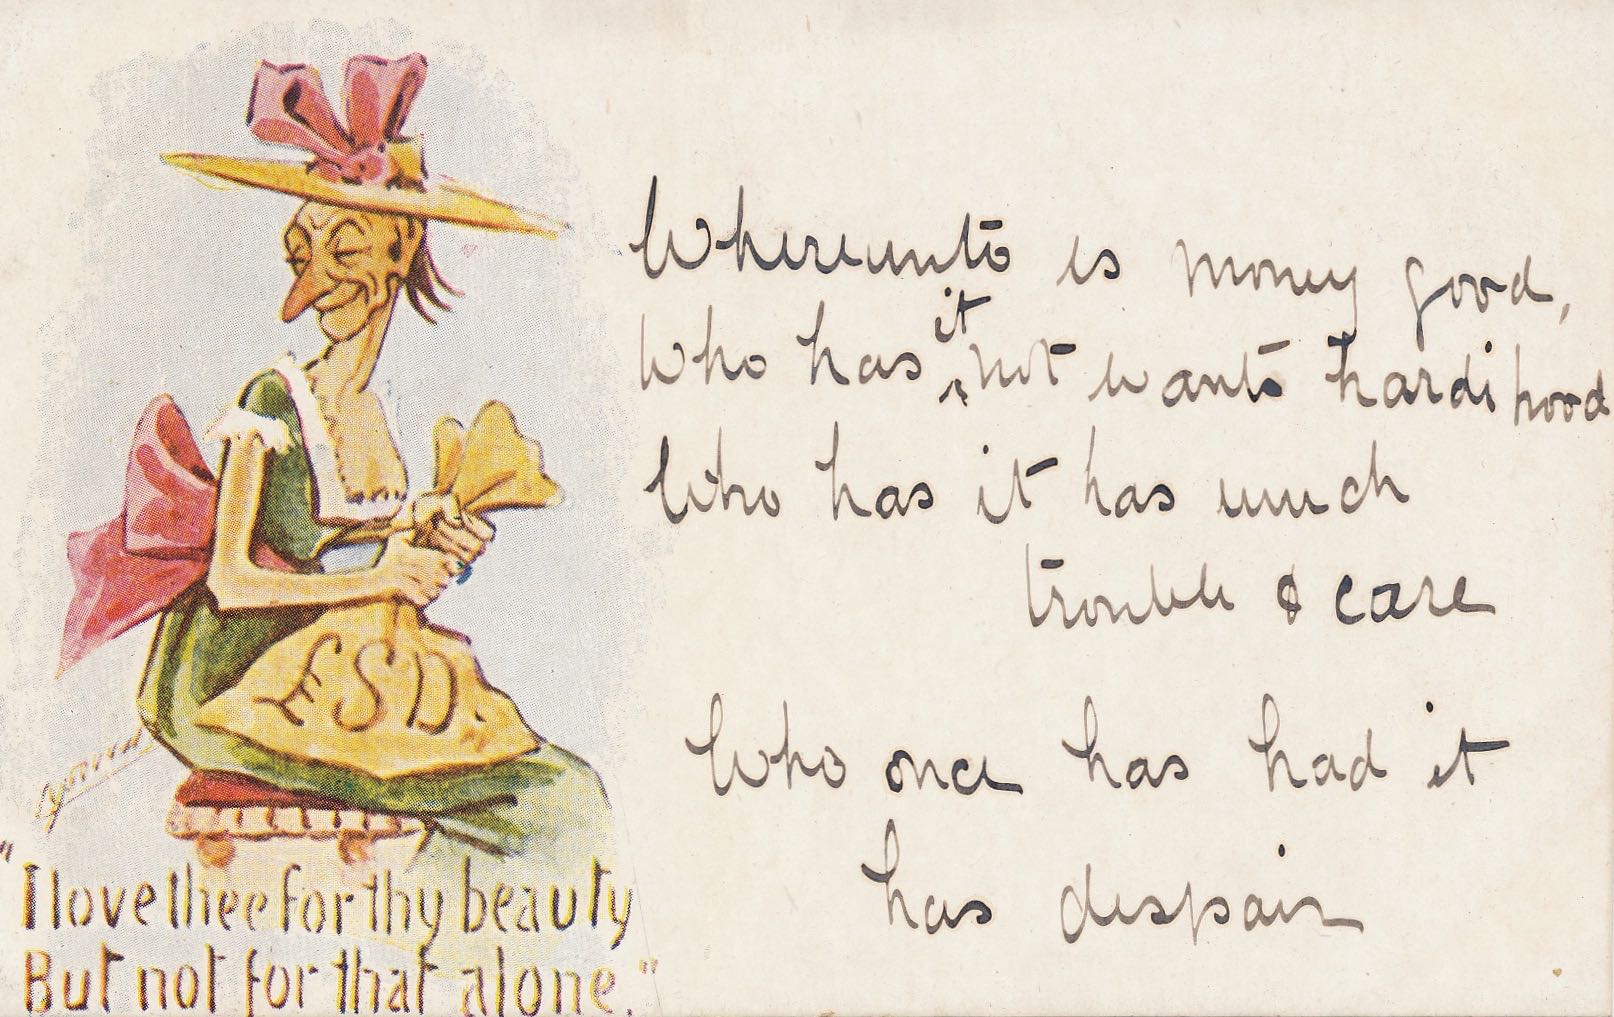 Whereunto is money good,
Who has it not wants hardihood
Who has it has much
trouble & care
Who once has had it
has despair
£SD
"I love thee for thy beauty
But not for that alone."